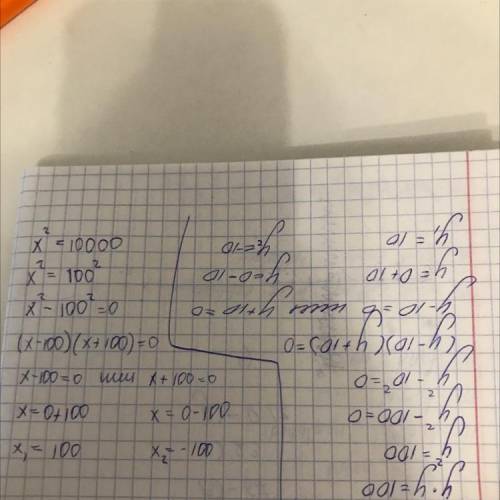 x² = 10000
x² = 100²
x² - 100² = 0
(x-100)(x+100)=0
x-100=0 или x+100=0
x=0+100 x=0-100
x₁=100 x₂=-100
y·y=100
y²=100
y²-100=0
y²-10²=0
(y-10)(y+10)=0
y-10=0 или y+10=0
y=0+10 y=0-10
y₁=10 y₂=-10